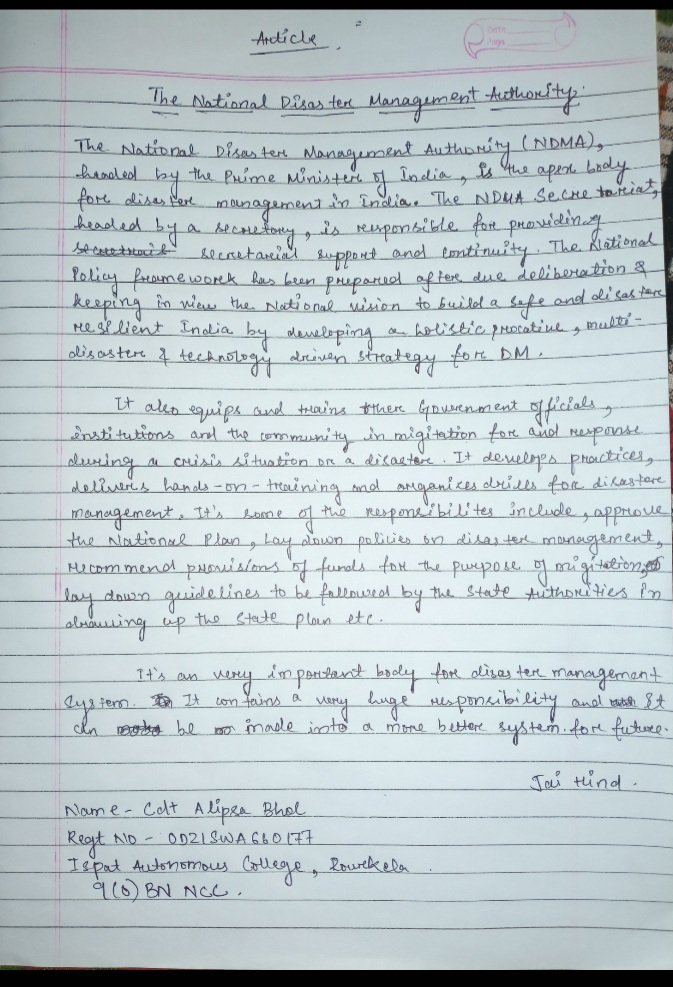 Article.
Date
Page
The National Disaster Management Authority.
The National Disaster Management Authority (NDMA),
headed by the Prime Minister of India, is the apex body
for disaster management in India. The NDMA Secretariat,
headed by a secretary, is responsible for providing
secretarial support and continuity. The National
Policy framework has been prepared after due deliberation &
keeping in view the National vision to build a safe and disaster
resilient India by developing a holistic procative, multi-
disaster & technology driven strategy for DM.
It also equips and trains other Government officials,
institutions and the community in migitation for and response
during a crisis situation or a disaster. It develops practices,
delivers hands-on-training and organices drills for disaster
management. It's some of the responsibilites include, approve
the National Plan, Lay down policies on disaster management,
recommend provisions of funds for the purpose of migitation,
lay down guidelines to be followed by the State Authorities in
drawing up the State Plan etc.
It's an very important body for disaster management
system. It contains a very huge responsibility and it
can be made into a more better system for future.
Jai Hind.
Name - Cdt Alipsa Bhol
Regt No - OD21SWA660177
Ispat Autonomous College, Rourkela.
9(O) BN NCC.